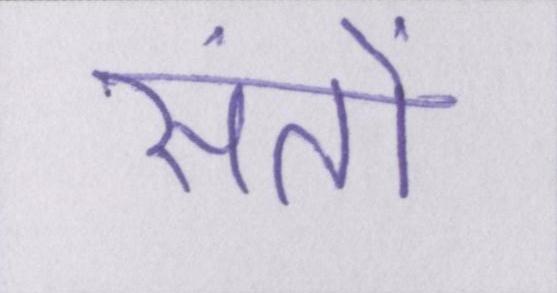 संतों